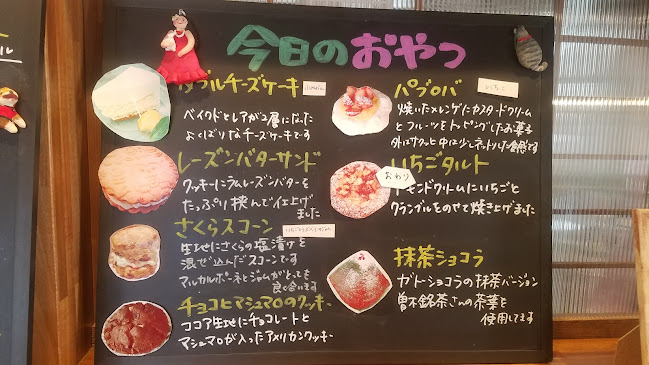 今日のおやつ
ダブルチーズケーキ
ベイクドとレアが2層になった
よくばりなチーズケーキです
レーズンバターサンド
クッキーにラムレーズンバターを
たっぷり挟んで仕上げ
ました
さくらスコーン
生地にさくらの塩漬けを
混ぜ込んだスコーンです
マスカルポーネとジャムがとても
良く合います
チョコとマシュマロのクッキー
ココア生地にチョコレートと
マシュマロが入ったアメリカンクッキー
パブロバ
いちご
焼いたメレンゲにカスタードクリーム
とフルーツをトッピングしたお菓子
外はサクッと中は少しネットリした食感です
いちごタルト
おわり
アーモンドクリームにいちごと
クランブルをのせて焼き上げました
抹茶ショコラ
ガトーショコラの抹茶バージョン
曽木銘茶さんの茶葉を
使用してます
ル